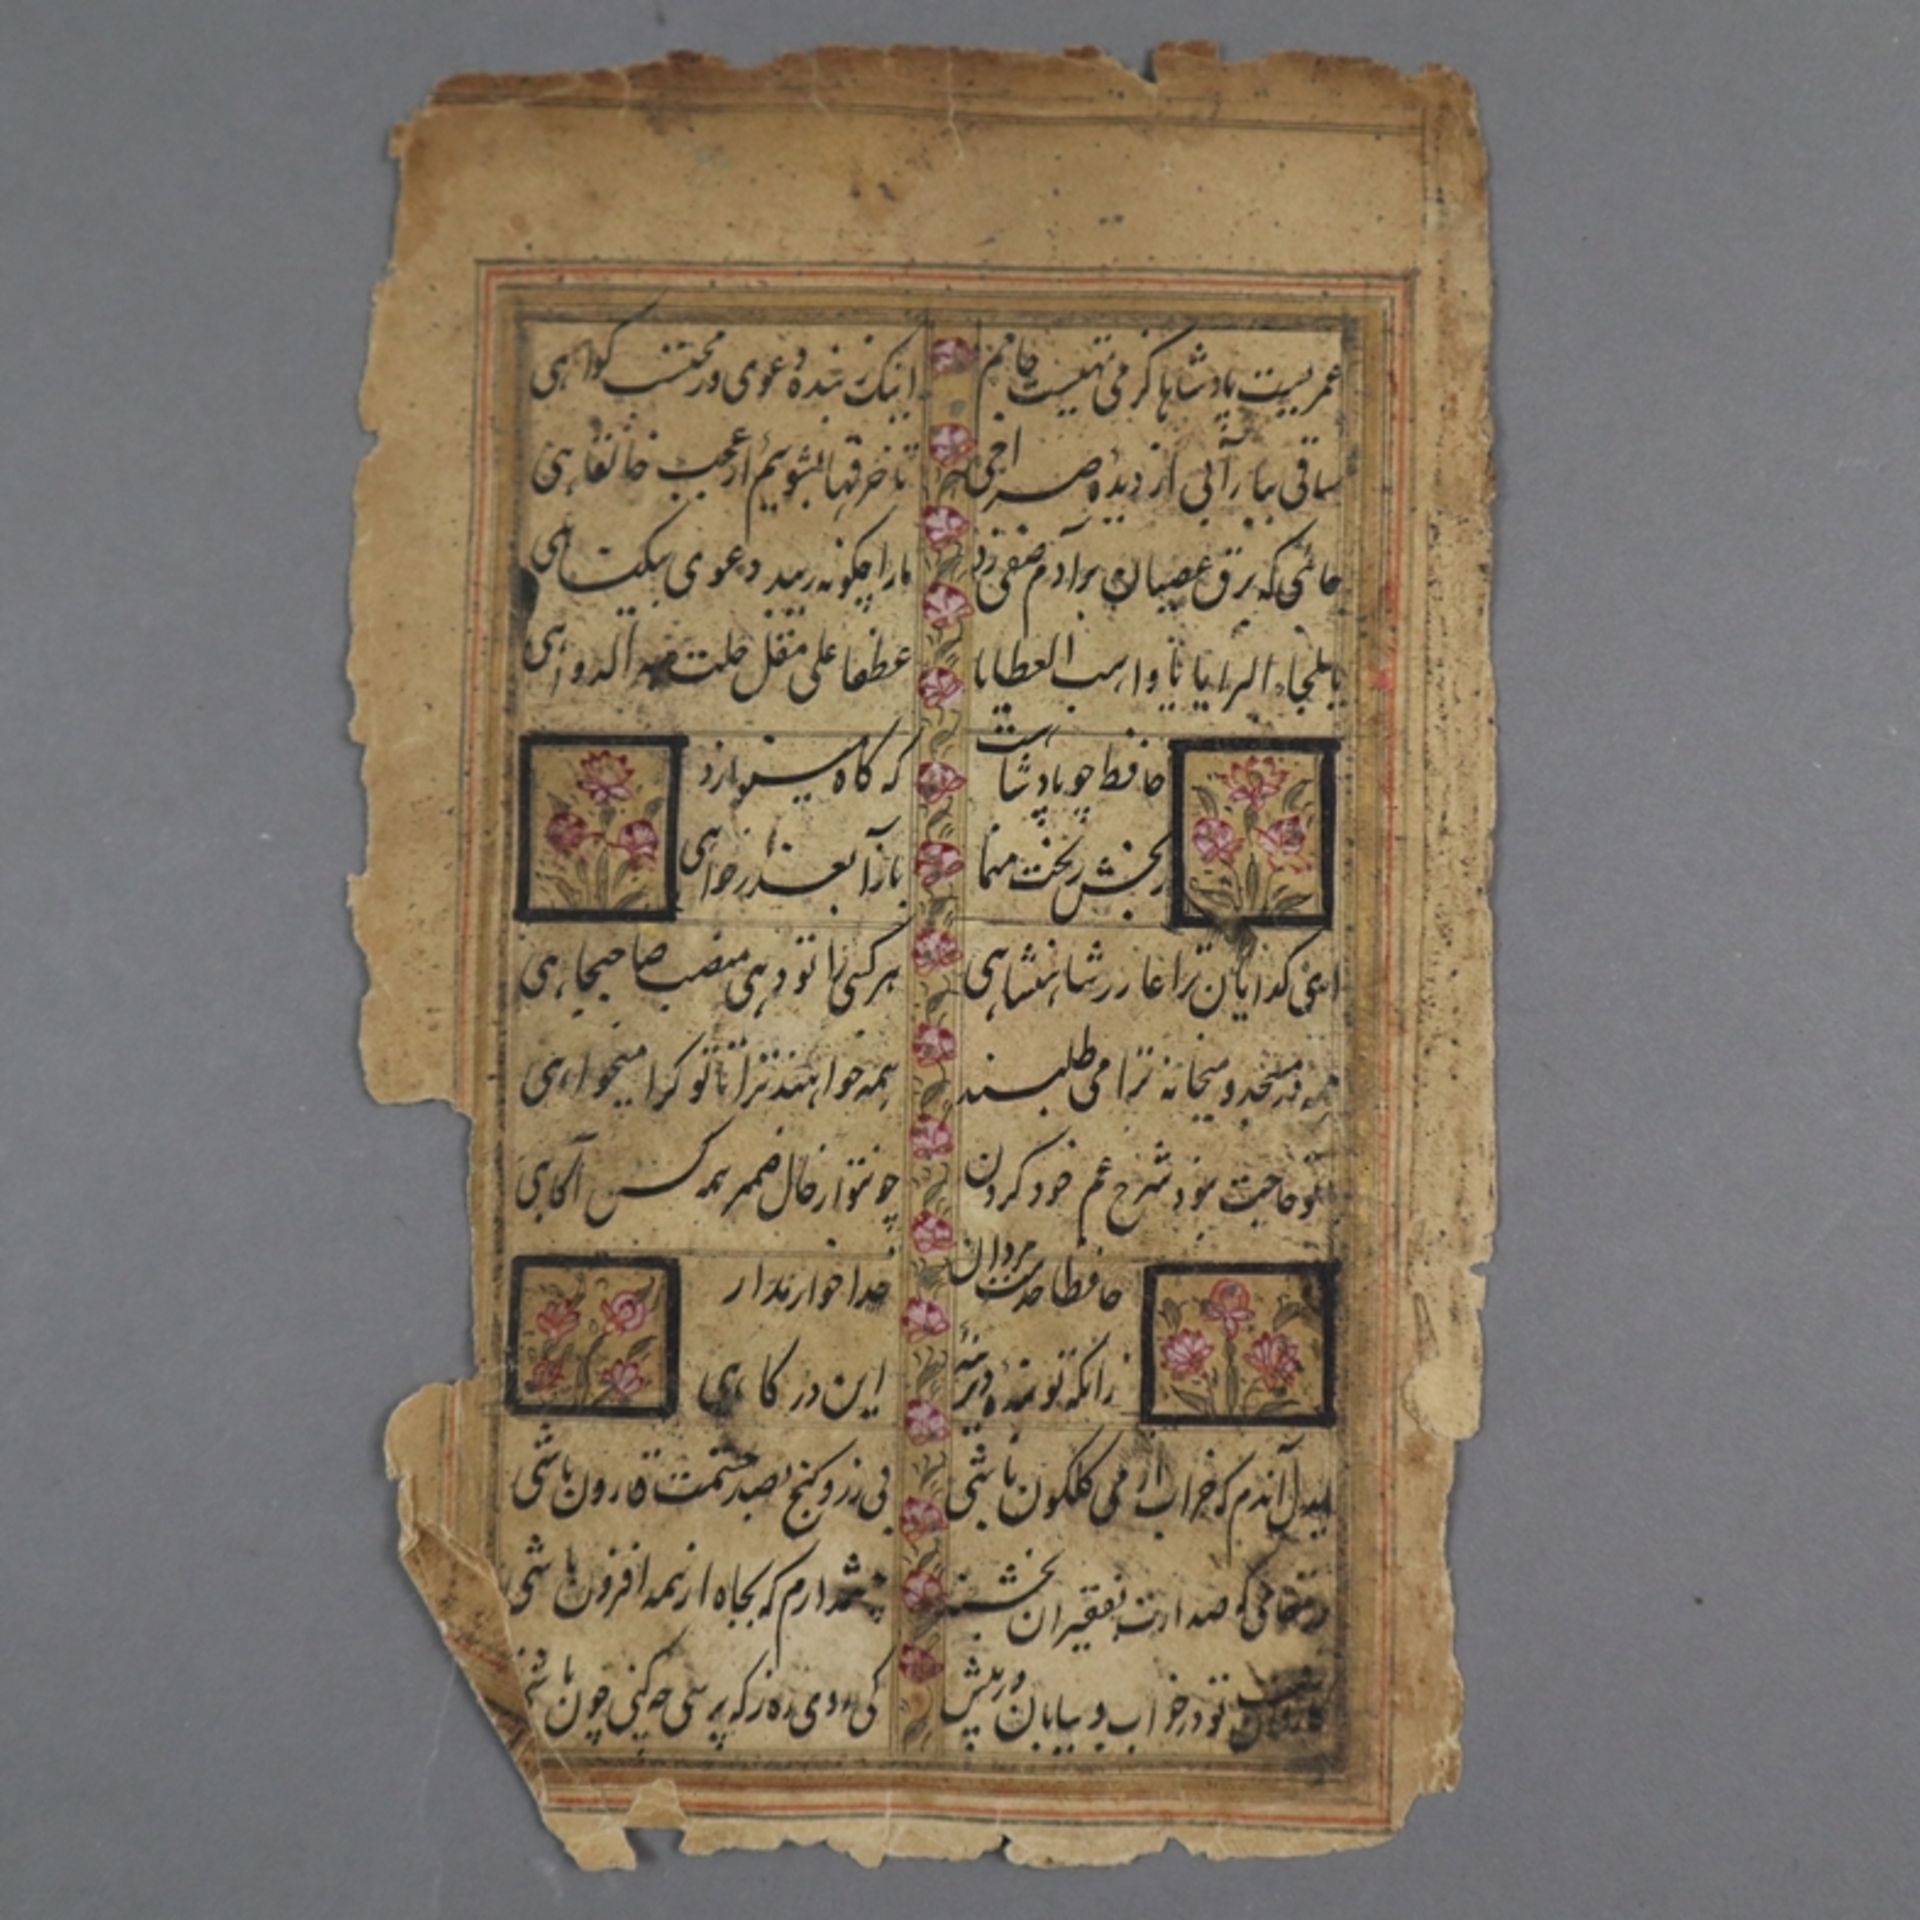 عمریست پادشاها کز می تهیست جامم اینک ز بنده دعوی وز محتسب گواهی
ساقی بیار آبی از دیده صراحی تا خرقها بشوییم از عجب خانقاهی
جائی که برق عصیان بر آدم صفی زد ما را چگونه زیبد دعوی بیگناهی
یا ملجاء البرایا یا واهب العطایا عطفا علی مقل حلت به الدواهی
حافظ چو پادشاهت که گاه میبرد
رنجش ز بخت منما بازآ بعذرخواهی
ای گدایان ترا عار ز شاهنشاهی هر کسی را تو دهی منصب صاحبجاهی
همه در مسجد و میخانه ترا می طلبند همه خواهند ترا تا تو کرا میخواهی
حاجت نبود شرح غم خود کردن چو تو از حال ضمیر همه کس آگاهی
حافظا خدمت مردان خدا خوار مدار
زانکه تو بنده دیرینه این درگاهی
ایدل آندم که خراب از می گلگون باشی بی زر و گنج بصد حشمت قارون باشی
در مقامی که صدارت بفقیران بخشند چشم دارم که بجاه از همه افزون باشی
کاروان رفت تو در خواب و بیابان در پیش کی روی ره ز که پرسی چه کنی چون باشی